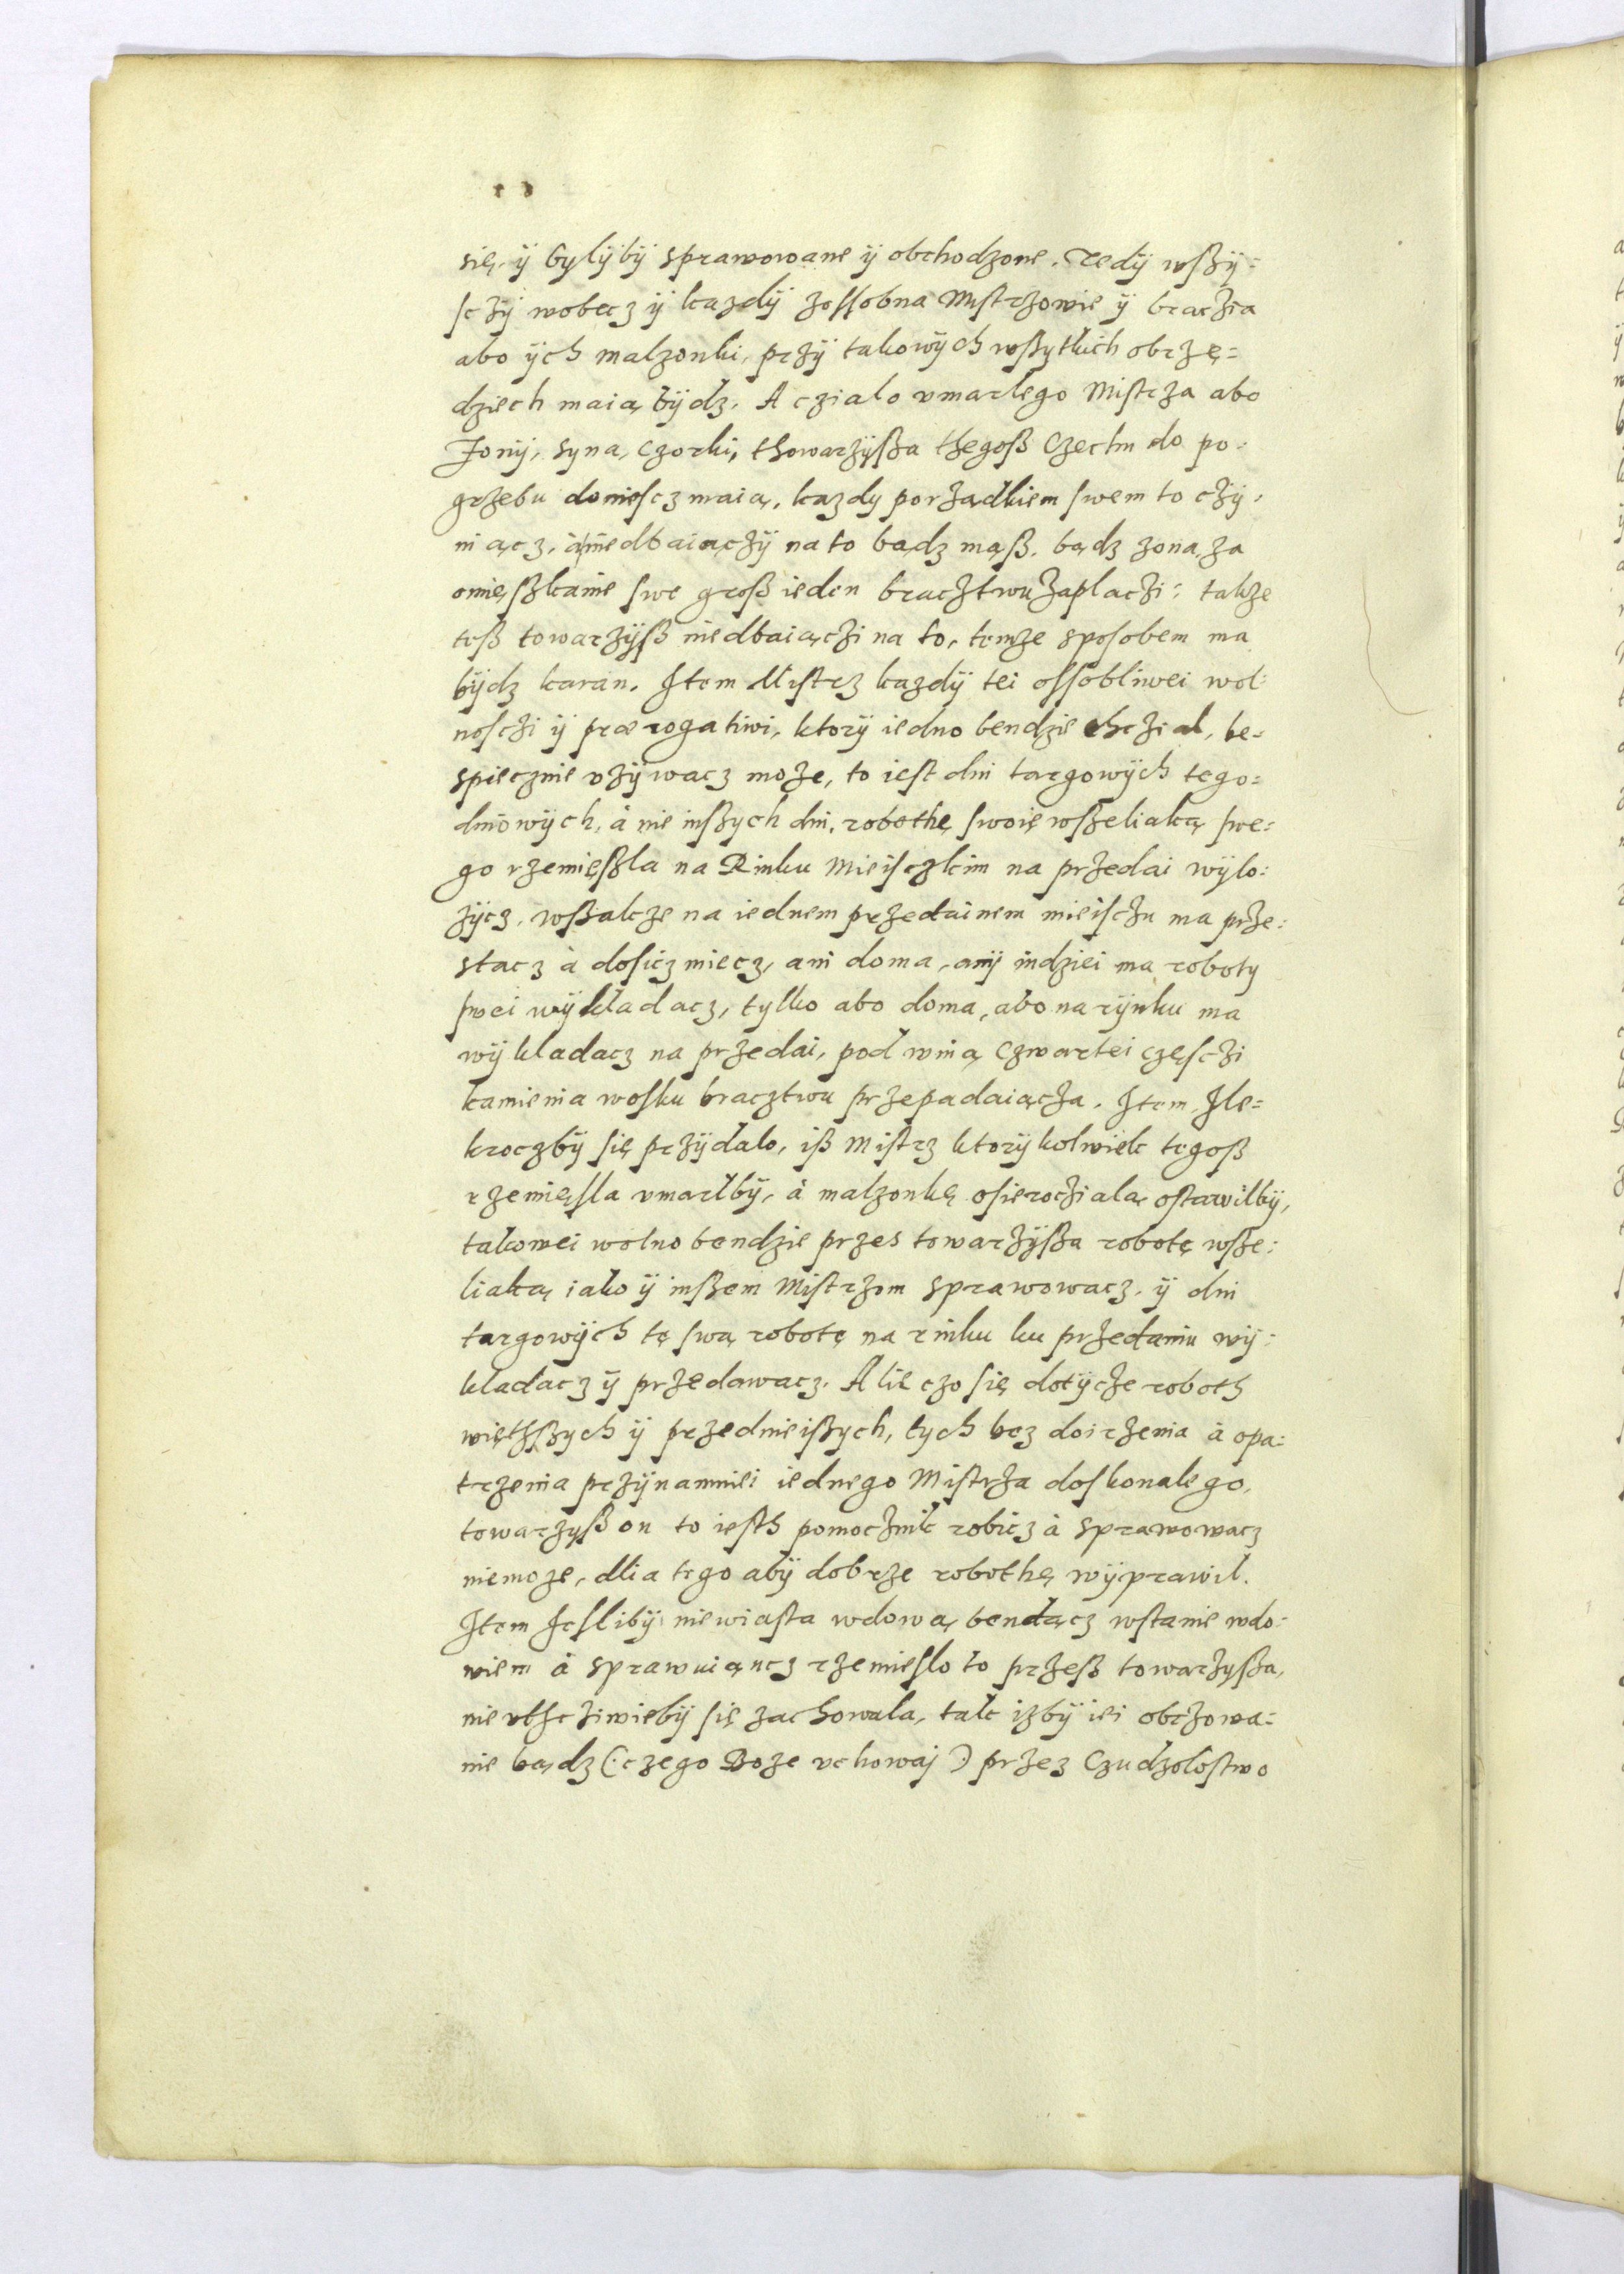 się, ÿ bylÿbÿ sprawowane ÿ obchodzone. Tedÿ wßÿ=
sczÿ wobecz ÿ kazdÿ zossobna Mistrzowie ÿ braczia
abo ÿch malzonki, przÿ takowÿch wßytkich obrzę=
dziech maią bÿdz. A czialo vmarlego Mistrza abo
Zonÿ, syna, Czorki, thowarzÿßa thegoß Czechu do po=
grzebu doniescz maią, kazdy porządkiem swem to czÿ,
niącz, à niedbaiączÿ na to bądz mąß, bądz zona, za
omięßkanie swe groß ieden bracztwu zaplaczi: takze
teß towarzÿß niedbaiączi na to, temze sposobem ma
bÿdz karan. Item Mistrz kazdÿ tei ossobliwei wol=
nosczi ÿ prærogatiwi, ktorÿ iedno bendzie chczial, be=
spiecznie vzÿwacz moze, to iest dni targowÿch tego=
dniowÿch, à nie inßych dni, robothę swoię wßeliaką swe=
go rzemięßla na Rinku Mieisczkim na przedai wÿlo=
zÿcz. wßakze na iednem przedainem mieisczu ma prze=
stacz à dosicz miecz, ani doma, anÿ indziei ma roboty
swei wÿkladacz, tylko abo doma, abo na rÿnku ma
wÿkladacz na przedai, pod winą czwartei częsczi
kamienia wosku bracztwu przepadaiącza. Item Ile=
kroczbÿ się przÿdalo, iß Mistrz ktorÿkolwiek tegoß
rzemięsla vmarlbÿ, à malzonkę osierocziałą ostawilbÿ,
takowei wolno bendzie przes towarzÿßa robotę wße=
liaką iako ÿ inßem Mistrzom sprawowacz, ÿ dni
targowÿch tę swą robotę na rinku ku przedaniu wÿ=
kladacz ÿ przedawacz. Alie czo się dotÿcze roboth
więthßych ÿ przednieißych, tych bez doirzenia à opa=
trzenia przÿnamniei iednego Mistrza doskonalego,
towarzyß on to iesth pomocznik robicz à sprawowacz
niemoze, dlia tego abÿ dobrze robothę wÿprawil.
Item Iesliby niewiasta wdową bendącz wstanie wdo=
wiem à sprawuiąncz rzemieslo to przeß towarzyßa,
nievthcziwiebÿ się zachowala, tak izbÿ iei obczowa=
nie bądz (:czego Boze vchowaj:) przez Czudzolostwo